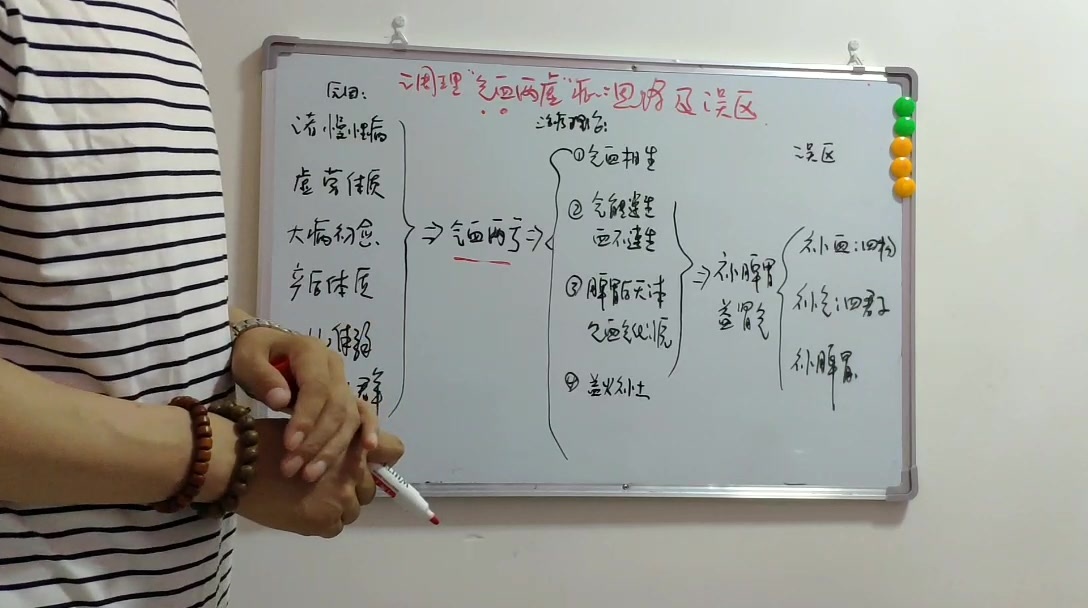 调理“气血两虚”症:思路及误区
原因:
诸慢性病
虚劳体质
大病初愈
产后体质
体弱
群
气血两亏
治病理论:
①气血相生
②气能速生
血不速生
③脾胃后天本
气血生化源
④益火补土
补脾胃
益胃气
误区
补血:四物
补气:四君子
补脾胃